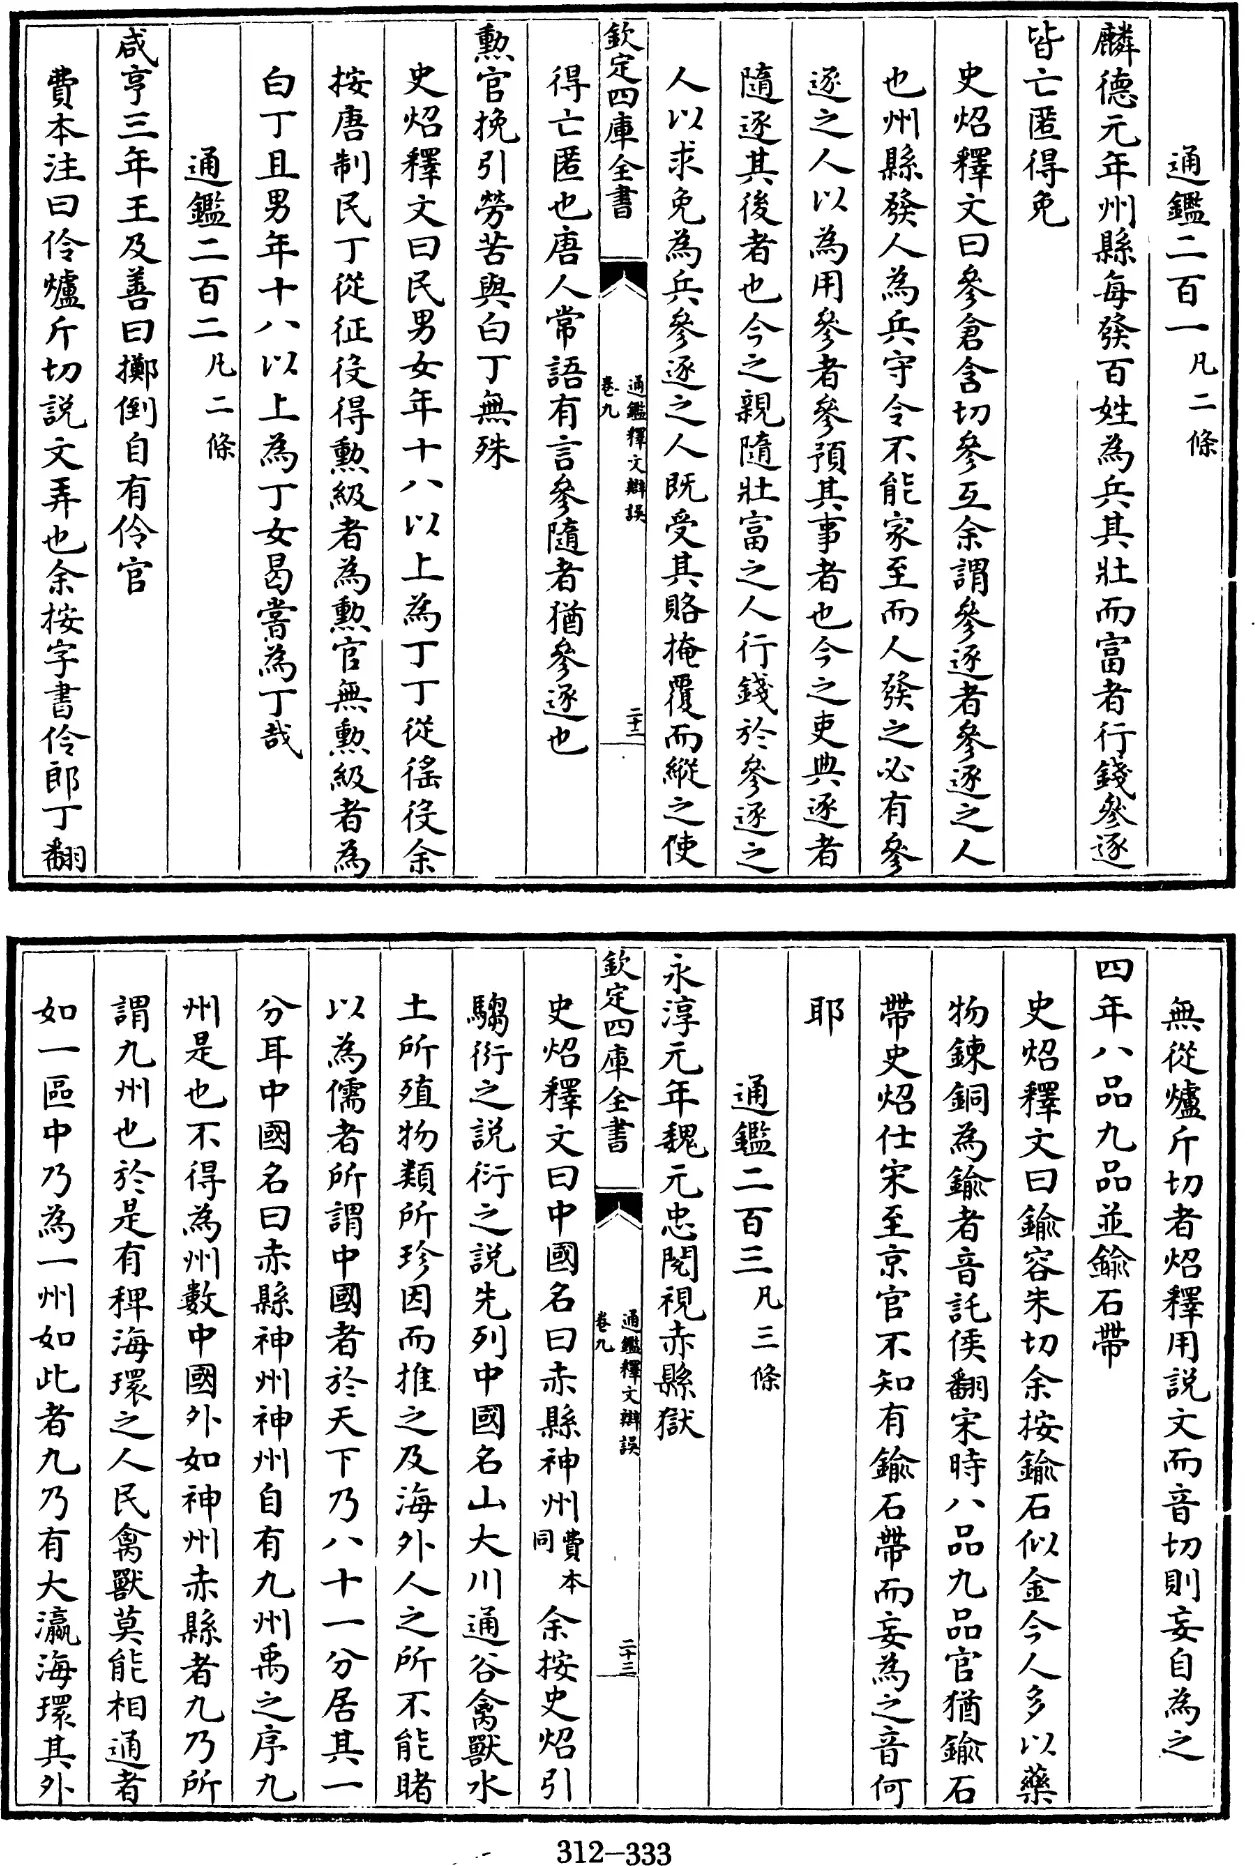 通鑑二百一凡二條
麟德元年州縣每發百姓為兵其壯而富者行錢參逐
皆亡匿得免
史炤釋文曰參倉含切參互余謂參逐者參逐之人
也州縣發人為兵守令不能家至而人發之必有參
逐之人以為用參者參預其事者也今之吏典逐者
隨逐其後者也今之親隨壯富之人行錢於參逐之
人以求免為兵參逐之人既受其賂掩覆而縱之使
欽定四庫全書
通鑑釋文辯誤
卷九
二十二
得亡匿也唐人常語有言參隨者猶參逐也
勲官挽引勞苦與白丁無殊
史炤釋文曰民男女年十八以上為丁丁從徭役余
按唐制民丁從征役得勲級者為勲官無勲級者為
白丁且男年十八以上為丁女曷嘗為丁哉
通鑑二百二凡二條
咸亨三年王及善曰擲倒自有伶官
費本注曰伶爐斤切説文弄也余按字書伶郎丁翻
無從爐斤切者炤釋用説文而音切則妄自為之
四年八品九品並鍮石帶
史炤釋文曰鍮容朱切余按鍮石似金今人多以藥
物鍊銅為鍮者音託侯翻宋時八品九品官猶鍮石
帶史炤仕宋至京官不知有鍮石帶而妄為之音何
耶
通鑑二百三凡三條
永淳元年魏元忠閱視赤縣獄
欽定四庫全書
通鑑釋文辯誤
卷九
二十三
史炤釋文曰中國名曰赤縣神州費本同余按史炤引
騶衍之説衍之説先列中國名山大川通谷禽獸水
土所殖物類所珍因而推之及海外人之所不能睹
以為儒者所謂中國者於天下乃八十一分居其一
分耳中國名曰赤縣神州神州自有九州禹之序九
州是也不得為州數中國外如神州赤縣者九乃所
謂九州也於是有稗海環之人民禽獸莫能相通者
如一區中乃為一州如此者九乃有大瀛海環其外
312-333